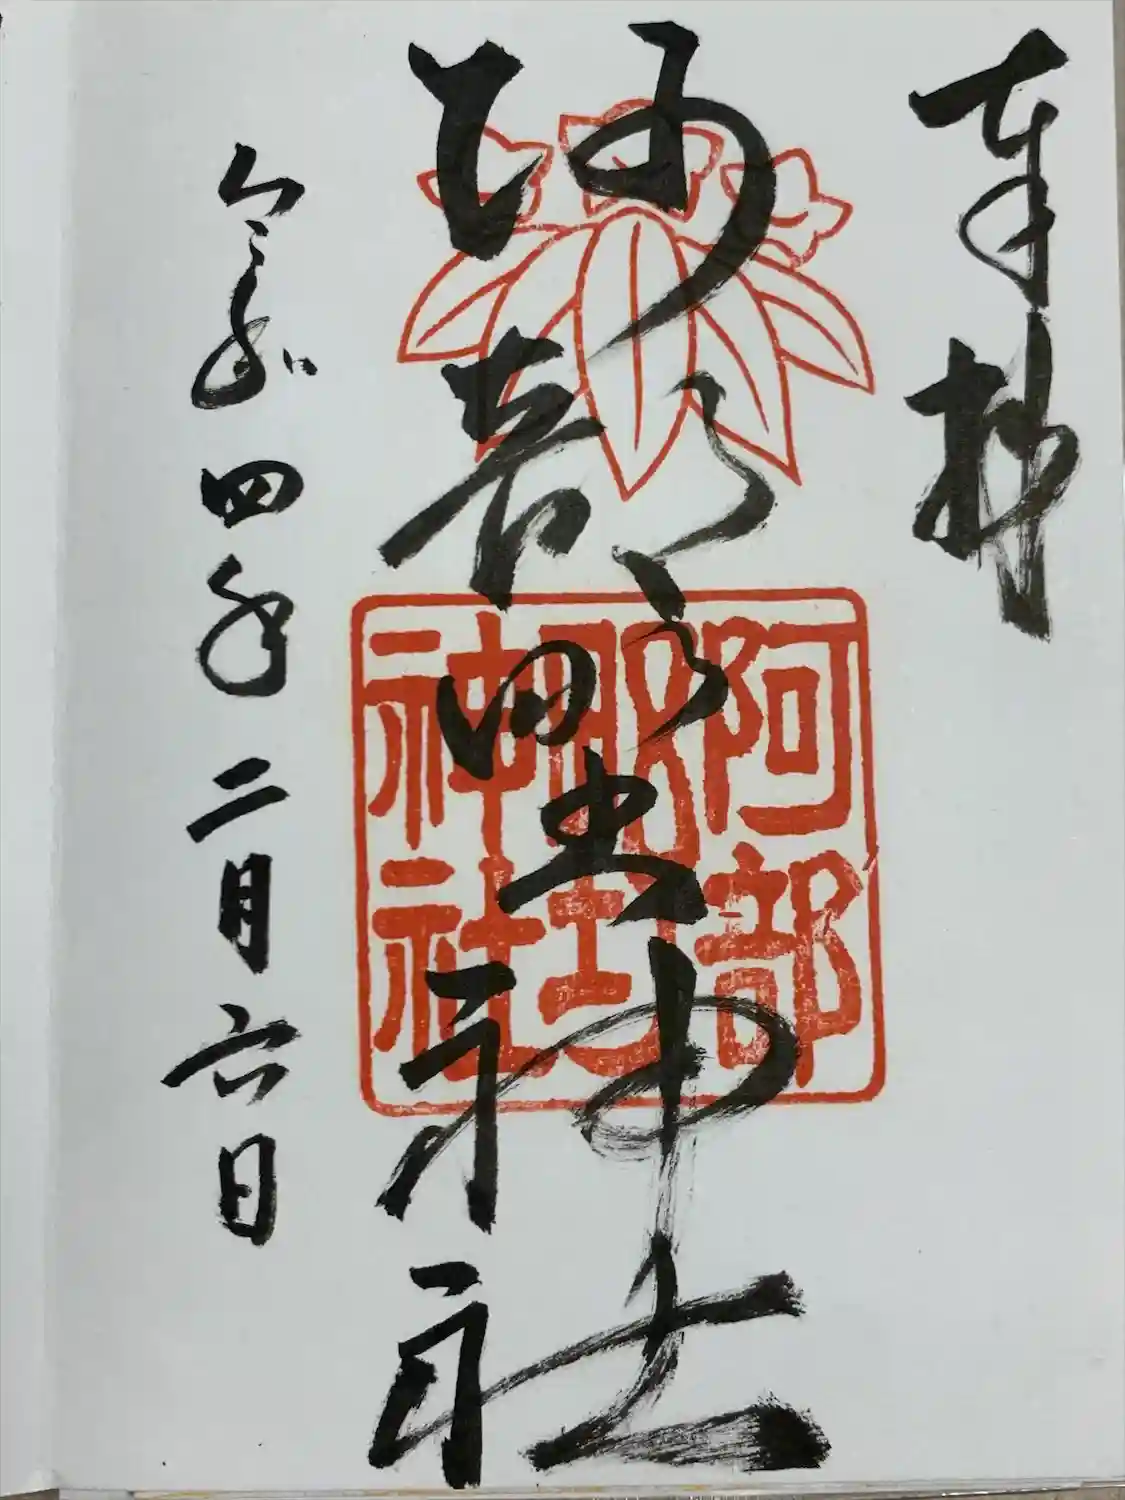 奉拝
阿部野神社
令和四年二月六日
阿部
野
神社